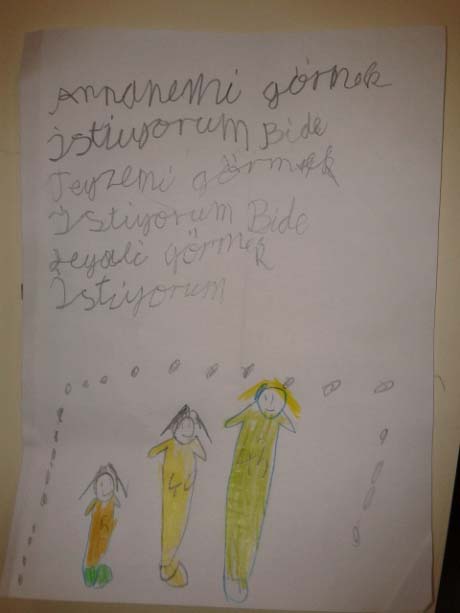 Annanemi görmek
İstiuyorum Bide
Teyzemi görmek
İstiyorum Bide
zeyali görmek
İstiyorum